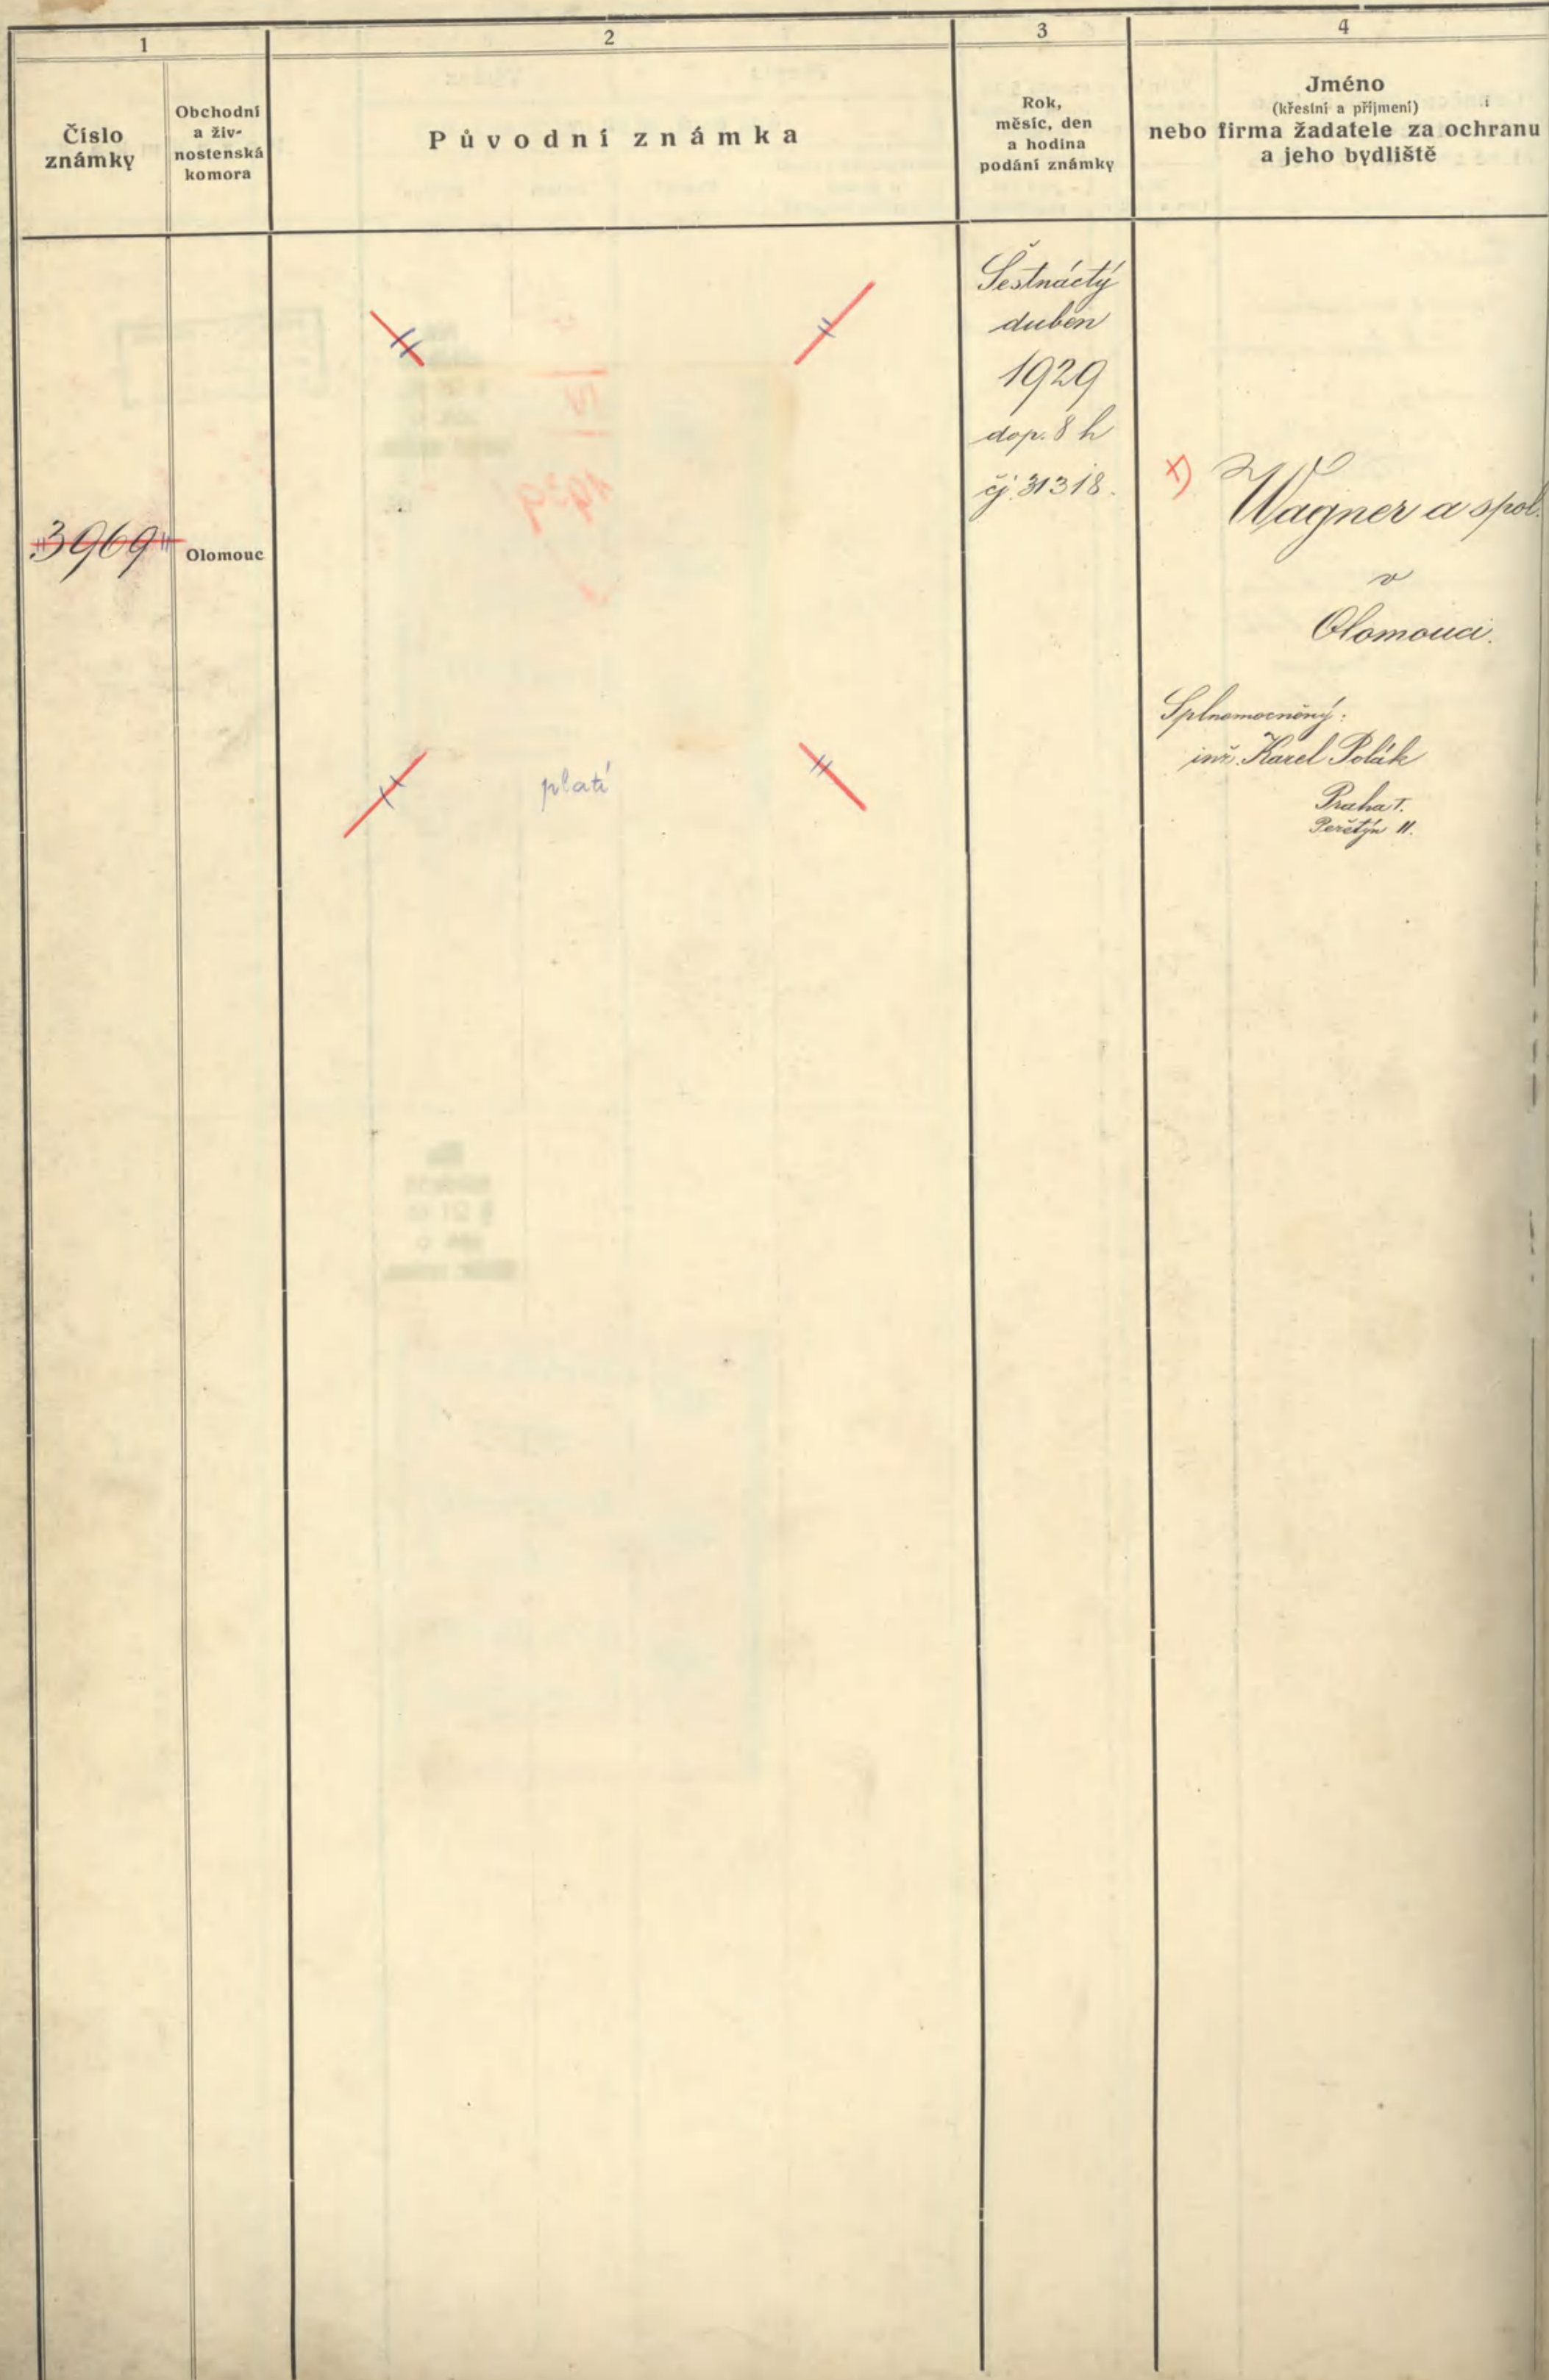 1
2
3
4
Číslo
známky
Obchodní
a živ-
nostenská
komora
Původní známka
Rok,
měsíc, den
a hodina
podání známky
Jméno
(křestní a příjmení)
nebo firma žadatele za ochranu
a jeho bydliště
3969
Olomouc
platí
Šestnáctý
duben
1929
dop. 8 h
čj. 31318.
x)
Wagner a spol.
v
Olomouci.
Splnomocněný:
inž. Karel Polák
Praha I.
Perštýn 11.